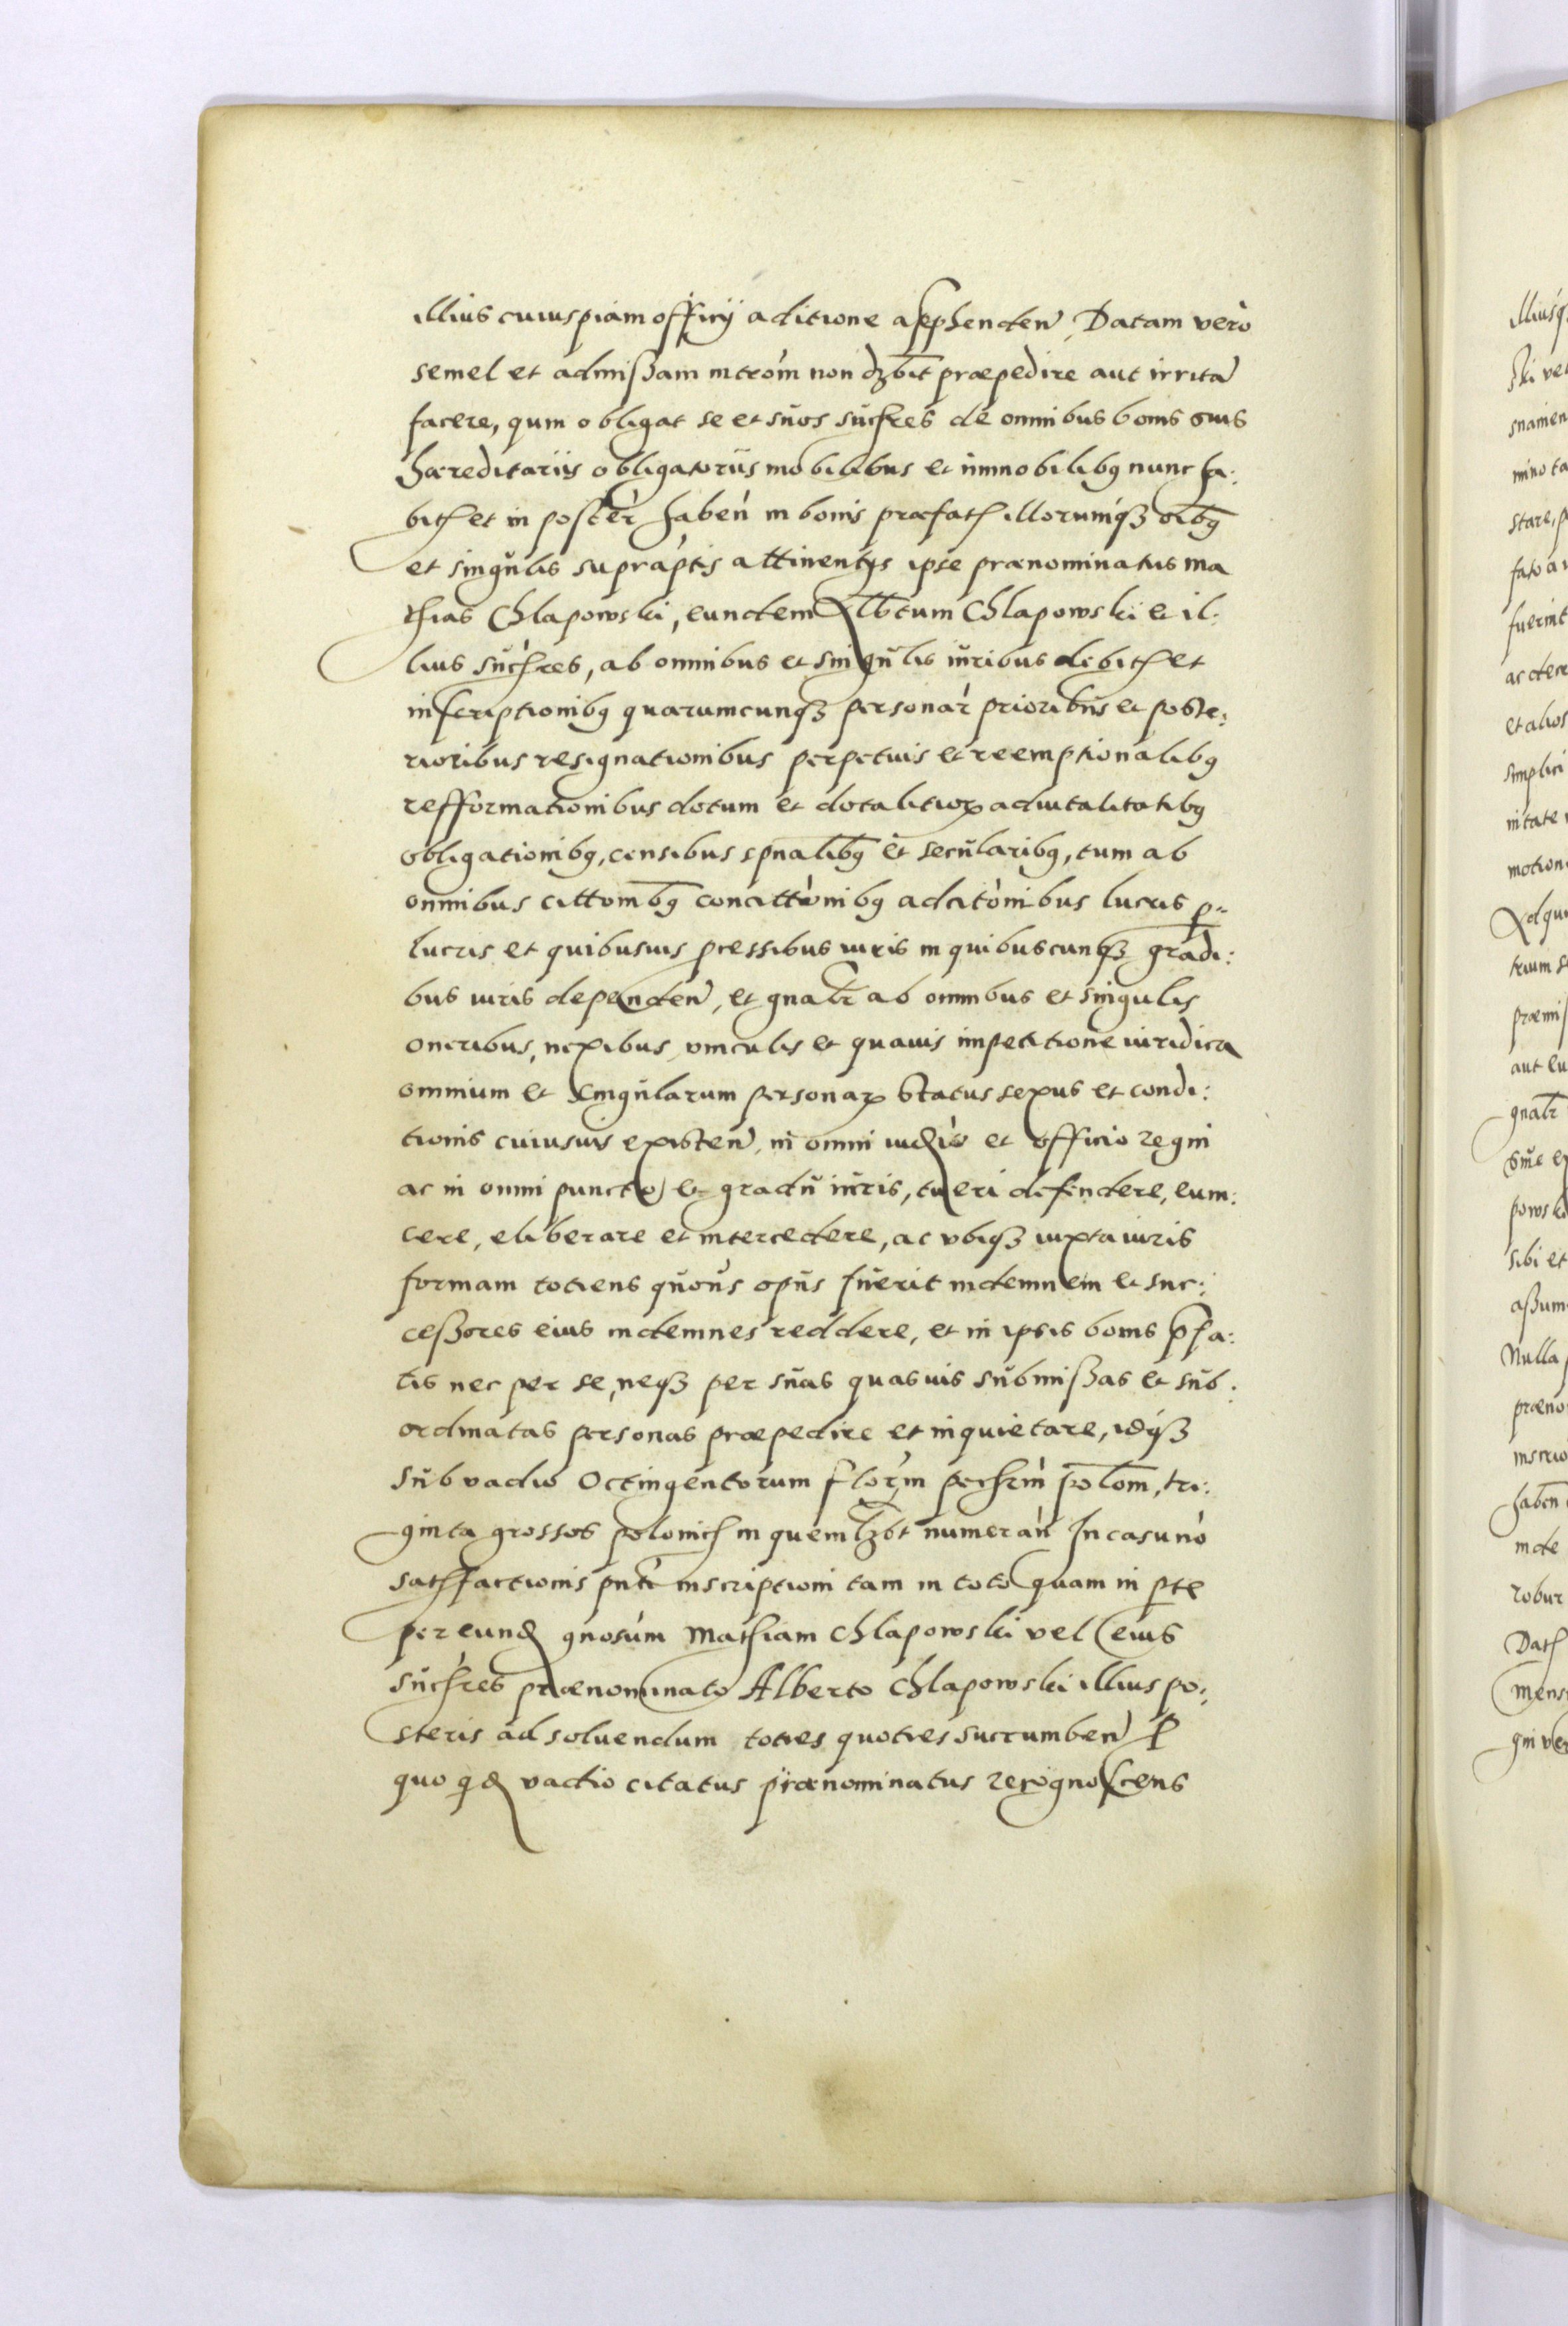 illius cuiuspiam officij aditione apphenden̄, Datam verò
semel et admißam intrōm non dꝫbit præpedire aut irritā
facere, quin obligat se et suos succres de omnibus bonis suis
hæreditariis obligatoriis mobilibus et immobilibꝰ nunc ha:
bitꝭ et in poster haben̄ in bonis præfatꝭ illorumqꝫ oībꝰ
et singulis supraptis attinentijs ipse prænominatus Ma
thias Chlapowski, eundem Albtum Chlapowski et il:
lius succres, ab omnibus et singulis iuribus debitꝭ et
inscriptionibꝰ quarumcunqꝫ personar̄ prioribus et poste:
rioribus resignationibus perpetuis et reemptionalibꝰ
refformationibus dotum et dotalitioꝝ aduitalitatibꝰ
obligationibꝰ, censibus spnalibꝰ et secularibꝰ, tum ab
omnibus cittonibꝰ concittonibꝰ adcitōnibus lucris p-
lucris et quibusuis pcessibus iuris in quibuscunqꝫ gradi:
bus iuris dependen̄, et gnalr̄ ab omnibus et singulis
oneribus, nexibus, vinculis et quauis impetitione iuridica
omnium et singularum personaꝝ status sexus et condi:
tionis cuiusuis existen̄, in omni iudio et officio regni
ac in omni puncto et gradu iuris, tueri defendere, euin:
cere, eliberare et intercedere, ac vbiqꝫ iuxta iuris
formam totiens quous opus fuerit indemnem et suc:
ceßores eius indemnes reddere, et in ipsis bonis p̄fa:
tis nec per se, neqꝫ per suas quasuis submißas et sub:
ordinatas personas præpedire et inquietare, idqꝫ
sub vadio Octingentorum florm̄ pechrin̄ polom̄, tri:
ginta grossos polonicꝭ in quemlꝫbt numeran̄ In casu nō
satꝭfactionis pnti inscriptioni tam in toto quam in pte
per eund gnosum Mathiam Chlapowski vel eius
succres prænominato Alberto Chlapowski illius po:
steris ad soluendum toties quoties succumben̄ P
quo qd vadio citatus prænominatus recognoscens